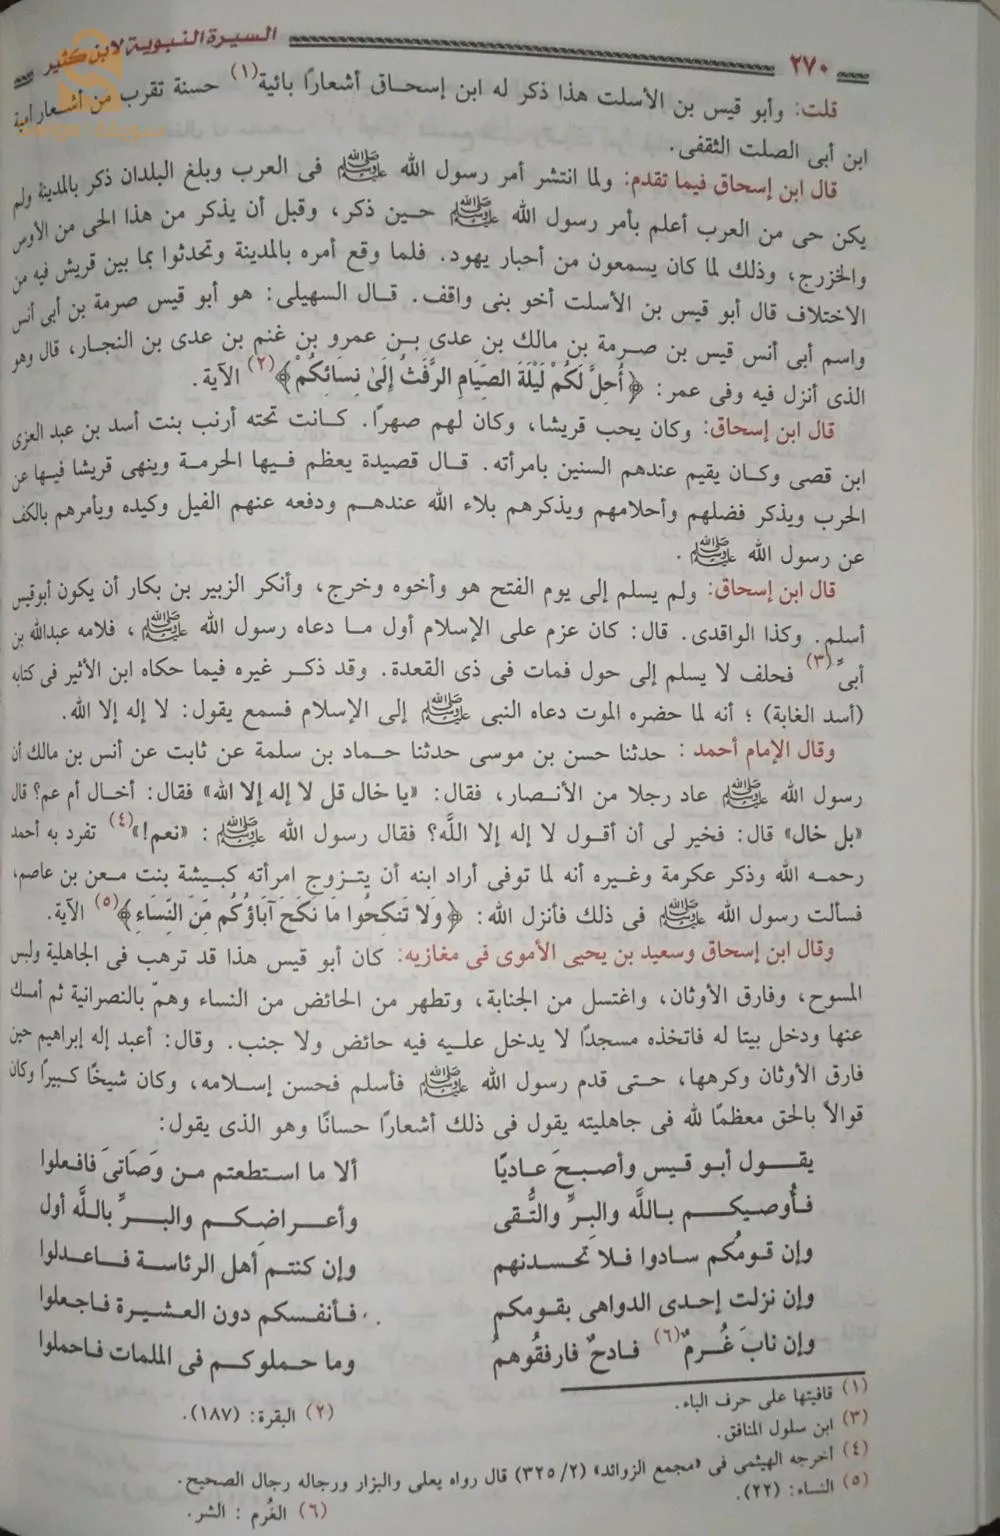 ٢٧٠ السيرة النبوية لابن كثير
قلت: وأبو قيس بن الأسلت هذا ذكر له ابن إسحاق أشعارًا بائية(١) حسنة تقرب من أشعار أمية
ابن أبى الصلت الثقفى.
قال ابن إسحاق فيما تقدم: ولما انتشر أمر رسول الله ﷺ فى العرب وبلغ البلدان ذكر بالمدينة ولم
يكن حى من العرب أعلم بأمر رسول الله ﷺ حين ذكر، وقبل أن يذكر من هذا الحى من الأوس
والخزرج، وذلك لما كان يسمعون من أحبار يهود. فلما وقع أمره بالمدينة وتحدثوا بما بين قريش فيه من
الاختلاف قال أبو قيس بن الأسلت أخو بنى واقف. قال السهيلى: هو أبو قيس صرمة بن أبى أنس
واسم أبى أنس قيس بن صرمة بن مالك بن عدى بن عمرو بن غنم بن عدى بن النجار، قال وهو
الذى أنزل فيه وفى عمر: ﴿أُحِلَّ لَكُمْ لَيْلَةَ الصِّيَامِ الرَّفَثُ إِلَىٰ نِسَائِكُمْ﴾(٢) الآية.
قال ابن إسحاق: وكان يحب قريشا، وكان لهم صهرًا. كانت تحته أرنب بنت أسد بن عبد العزى
ابن قصى وكان يقيم عندهم السنين بامرأته. قال قصيدة يعظم فيها الحرمة وينهى قريشا فيها عن
الحرب ويذكر فضلهم وأحلامهم ويذكرهم بلاء الله عندهم ودفعه عنهم الفيل وكيده ويأمرهم بالكف
عن رسول الله ﷺ.
قال ابن إسحاق: ولم يسلم إلى يوم الفتح هو وأخوه وخرج، وأنكر الزبير بن بكار أن يكون أبوقيس
أسلم. وكذا الواقدى. قال: كان عزم على الإسلام أول ما دعاه رسول الله ﷺ، فلامه عبدالله بن
أبىٍّ(٣) فحلف لا يسلم إلى حول فمات فى ذى القعدة. وقد ذكر غيره فيما حكاه ابن الأثير فى كتابه
(أسد الغابة) ؛ أنه لما حضره الموت دعاه النبى ﷺ إلى الإسلام فسمع يقول: لا إله إلا الله.
وقال الإمام أحمد : حدثنا حسن بن موسى حدثنا حماد بن سلمة عن ثابت عن أنس بن مالك أن
رسول الله ﷺ عاد رجلا من الأنصار، فقال: «يا خال قل لا إله إلا الله» فقال: أخال أم عم؟ قال
«بل خال» قال: فخير لى أن أقول لا إله إلا اللَّه؟ فقال رسول الله ﷺ : «نعم!»(٤) تفرد به أحمد
رحمه الله وذكر عكرمة وغيره أنه لما توفى أراد ابنه أن يتزوج امرأته كبيشة بنت معن بن عاصم،
فسألت رسول الله ﷺ فى ذلك فأنزل الله: ﴿وَلا تَنكِحُوا مَا نَكَحَ آبَاؤُكُم مِّنَ النِّسَاءِ﴾(٥) الآية.
وقال ابن إسحاق وسعيد بن يحيى الأموى فى مغازيه: كان أبو قيس هذا قد ترهب فى الجاهلية ولبس
المسوح، وفارق الأوثان، واغتسل من الجنابة، وتطهر من الحائض من النساء وهمّ بالنصرانية ثم أمسك
عنها ودخل بيتا له فاتخذه مسجدًا لا يدخل عليه فيه حائض ولا جنب. وقال: أعبد إله إبراهيم حين
فارق الأوثان وكرهها، حتى قدم رسول الله ﷺ فأسلم فحسن إسلامه، وكان شيخًا كبيرًا وكان
قوالاً بالحق معظمًا لله فى جاهليته يقول فى ذلك أشعارًا حسانًا وهو الذى يقول:
يقول أبو قيس وأصبحَ عاديًا ألا ما استطعتم من وَصَاتىَ فافعلوا
فأُوصيكم باللَّه والبِرِّ والتُّقى وأعراضِكم والبرِّ باللَّه أول
وإن قومُكم سادوا فلا تحسدنهم وإن كنتم أهل الرئاسة فاعدلوا
وإن نزلت إحدى الدواهى بقومكم فأنفسكم دون العشيرة فاجعلوا
وإن نابَ غُرمٌ(٦) فادحٌ فارفقُوهمُ وما حملوكم فى الملمات فاحملوا
(١) قافيتها على حرف الباء.
(٢) البقرة: (١٨٧).
(٣) ابن سلول المنافق.
(٤) أخرجه الهيثمى فى «مجمع الزوائد» (٢/ ٣٢٥) قال رواه يعلى والبزار ورجاله رجال الصحيح.
(٥) النساء: (٢٢).
(٦) الغُرم : الشر.